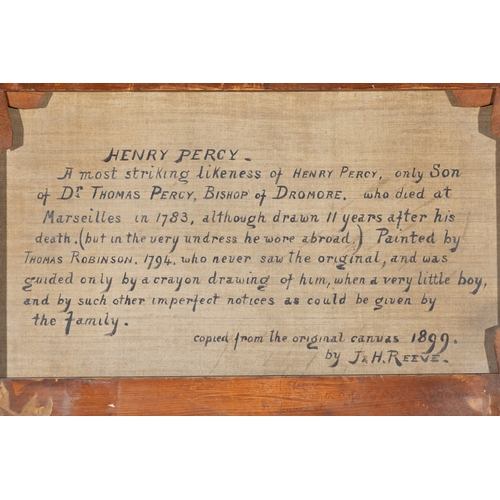 HENRY PERCY.
A most striking likeness of HENRY PERCY, only Son
of Dr THOMAS PERCY, BISHOP of DROMORE. who died at
Marseilles in 1783, although drawn 11 years after his
death. (but in the very undress he wore abroad.) Painted by
THOMAS ROBINSON. 1794. who never saw the original, and was
guided only by a crayon drawing of him, when a very little boy,
and by such other imperfect notices as could be given by
the Family.
copied from the original canvas 1899.
by J & H. REEVE.